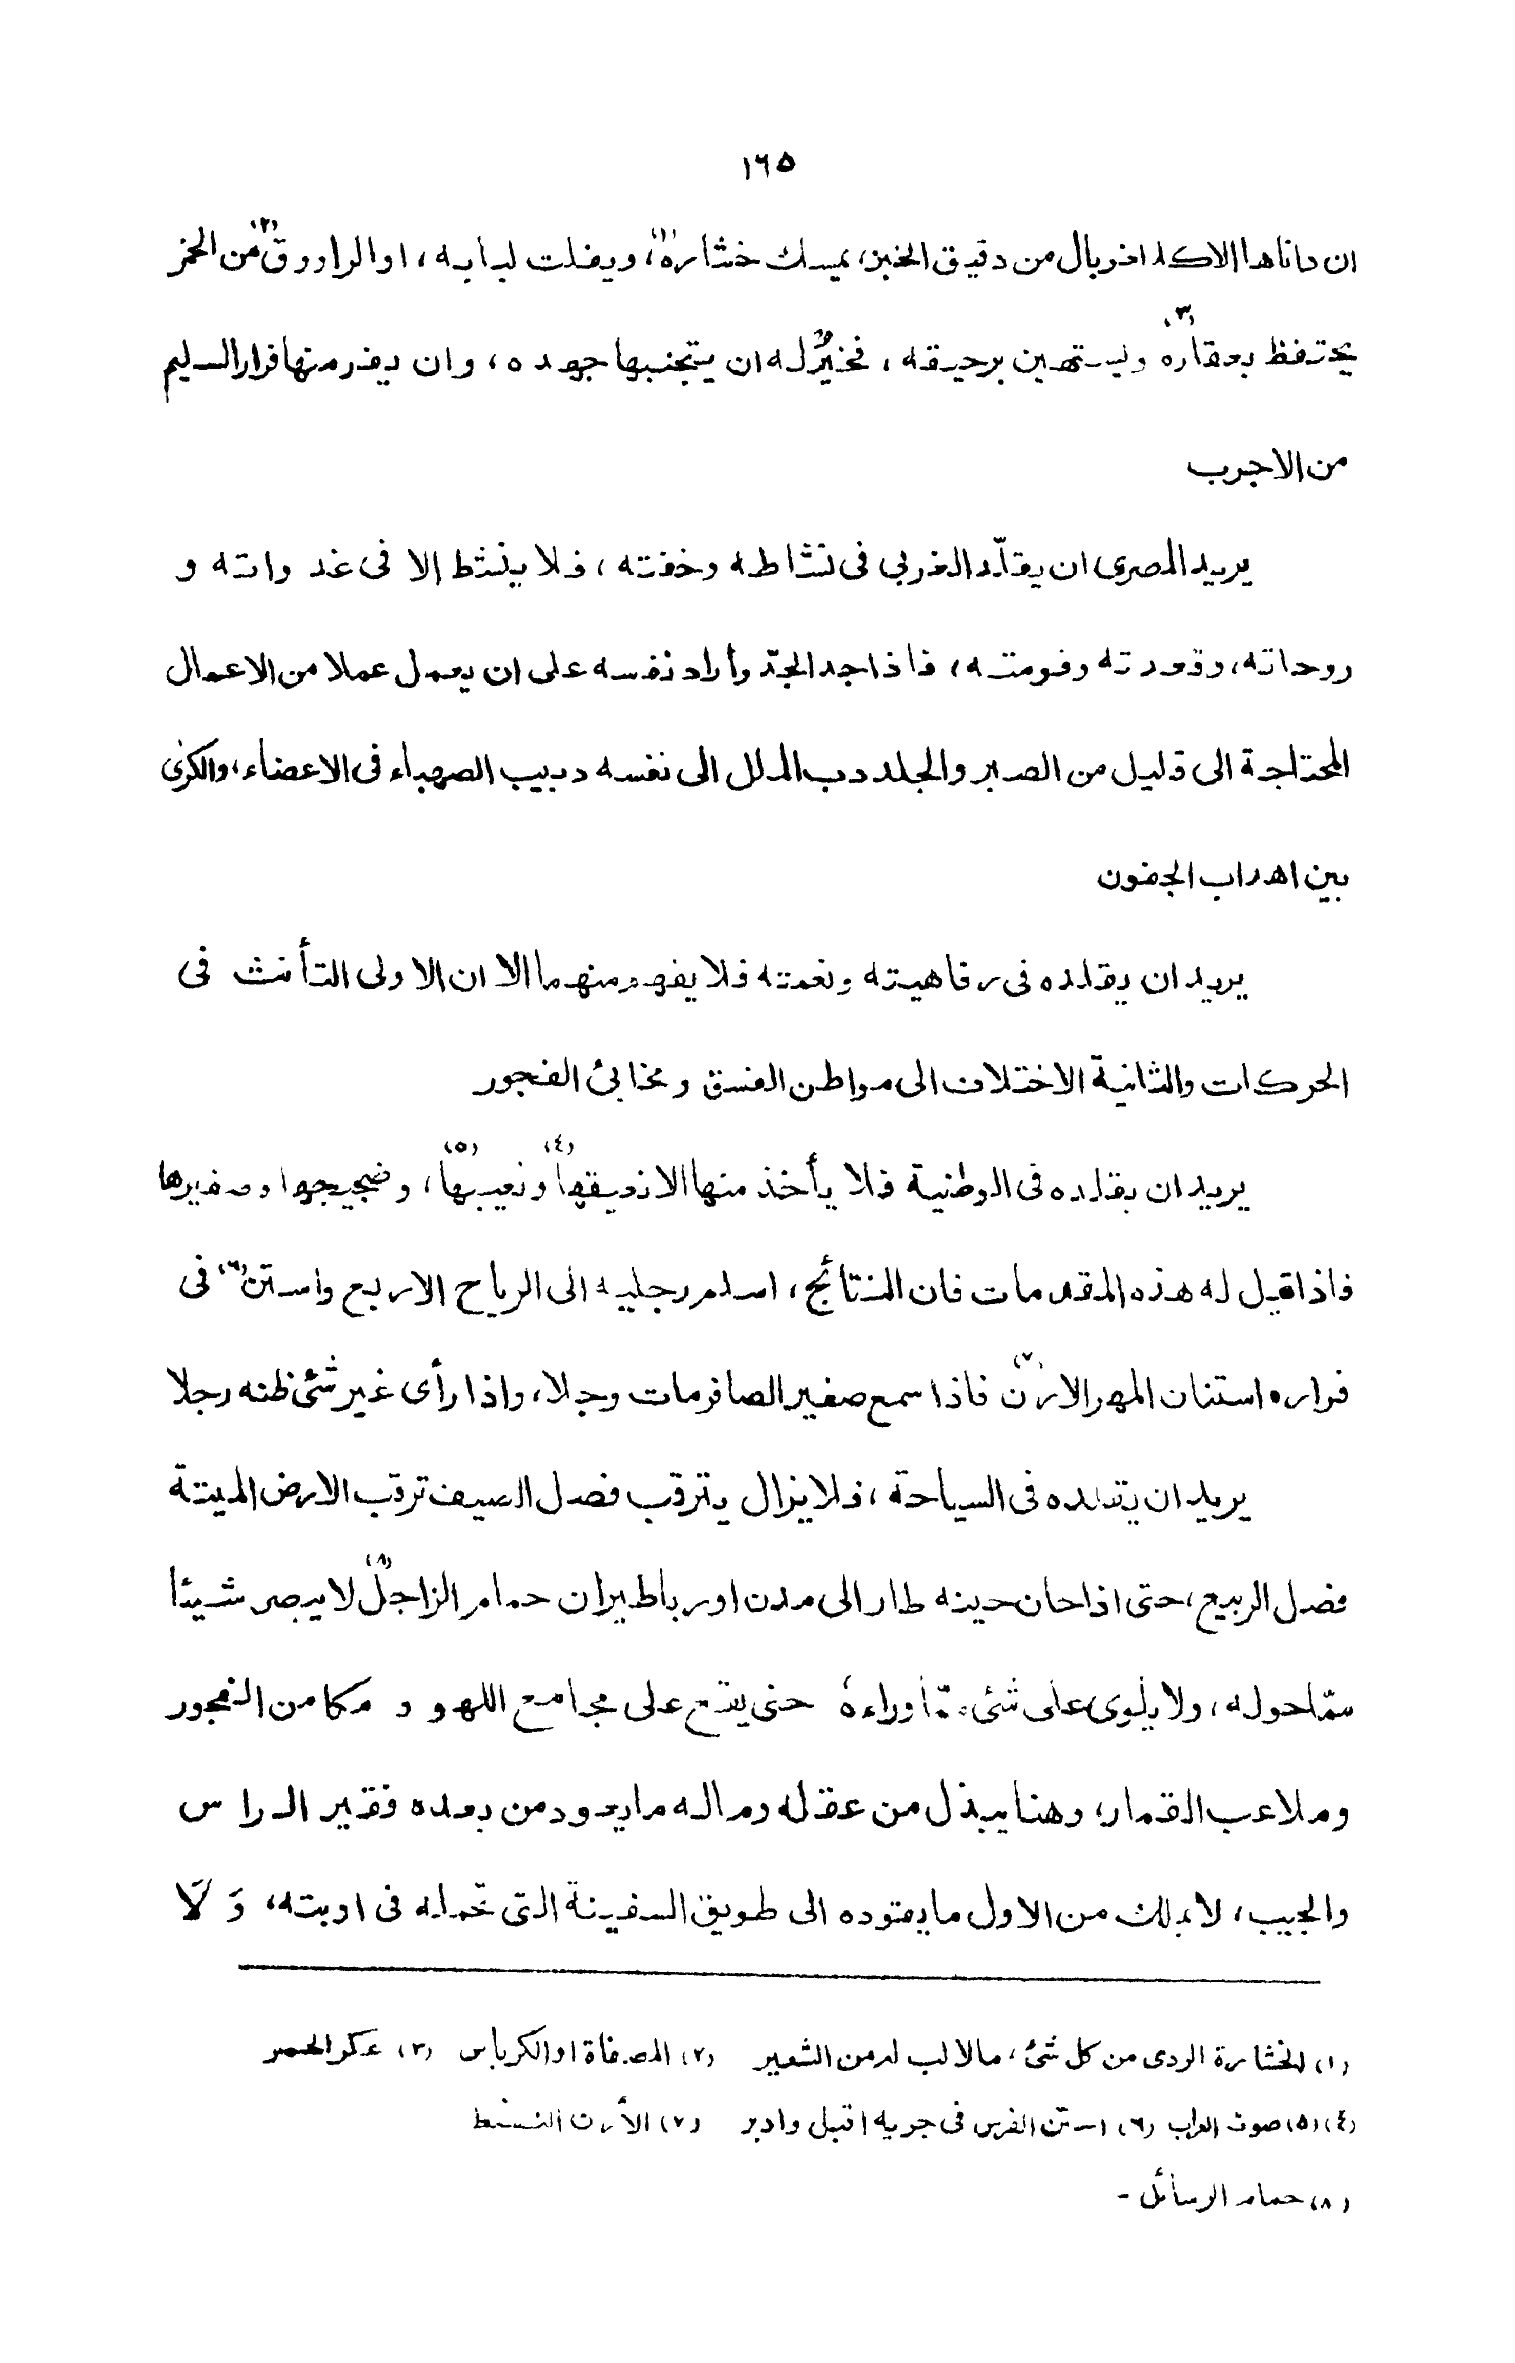 ١٦٥
ان داناها الا كما الغربال من دقيق الخبز، يمسك خشاره(١)، ويفلت لبابه، او الراووق(٢) من الخمر
يحتفظ بعقاره(٣) ويستهين برحيقه، فخيرٌ له ان يتجنبها جهده، وان يفر منها فرار السليم
من الاجرب
يريد المصرى ان يقلّد الغربي فى نشاطه وخفته، فلا ينشط الا فى غدواته و
روحاته، وقعدته وقومته، فاذا جد الجدّ وأراد نفسه على ان يعمل عملا من الاعمال
المحتاجة الى قليل من الصبر والجلد دب الملل الى نفسه دبيب الصهباء فى الاعضاء، والكرى
بين اهداب الجفون
يريد ان يقلده فى رفاهيته ونعمته فلا يفهم منهما الا ان الاولى التأنث فى
الحركات والثانية الاختلاف الى مواطن الفسق ومخابئ الفجور
يريد ان يقلده فى الوطنية فلا يأخذ منها الا نعيقها(٤) ونعيبها(٥)، وضجيجها وصفيرها
فاذا قيل له هذه المقدمات فان النتائج، اسلم رجليه الى الرياح الاربع واستن(٦) فى
فراره استنان المهر الارن(٧) فاذا سمع صفير الصافر مات وجلا، واذا رأى غير شئ ظنه رجلا
يريد ان يقلده فى السياحة، فلا يزال يترقب فصل الصيف ترقب الارض الميتة
فصل الربيع، حتى اذا حان حينه طار الى مدن اوربا طيران حمام الزاجل(٨) لا يبصر شيئا
ممّا حوله، ولا يلوى على شئ ممّا وراءه حتى يقع على مجامع اللهو و مكامن الفجور
وملاعب القمار، وهنا يبذل من عقله وماله ما يعود من بعده فقير الراس
والجيب، لا يملك من الاول ما يقوده الى طريق السفينة التى تحمله فى اوبته، وَلَا
(١) الخشارة الردى من كل شئ، مالا لب له من الشعير (٢) المصفاة او الكرباس (٣) عكر الخمر
(٤) (٥) صوت الغراب (٦) استن الفرس فى جريه اقبل وادبر (٧) الأرن النشيط
(٨) حمام الرسائل -